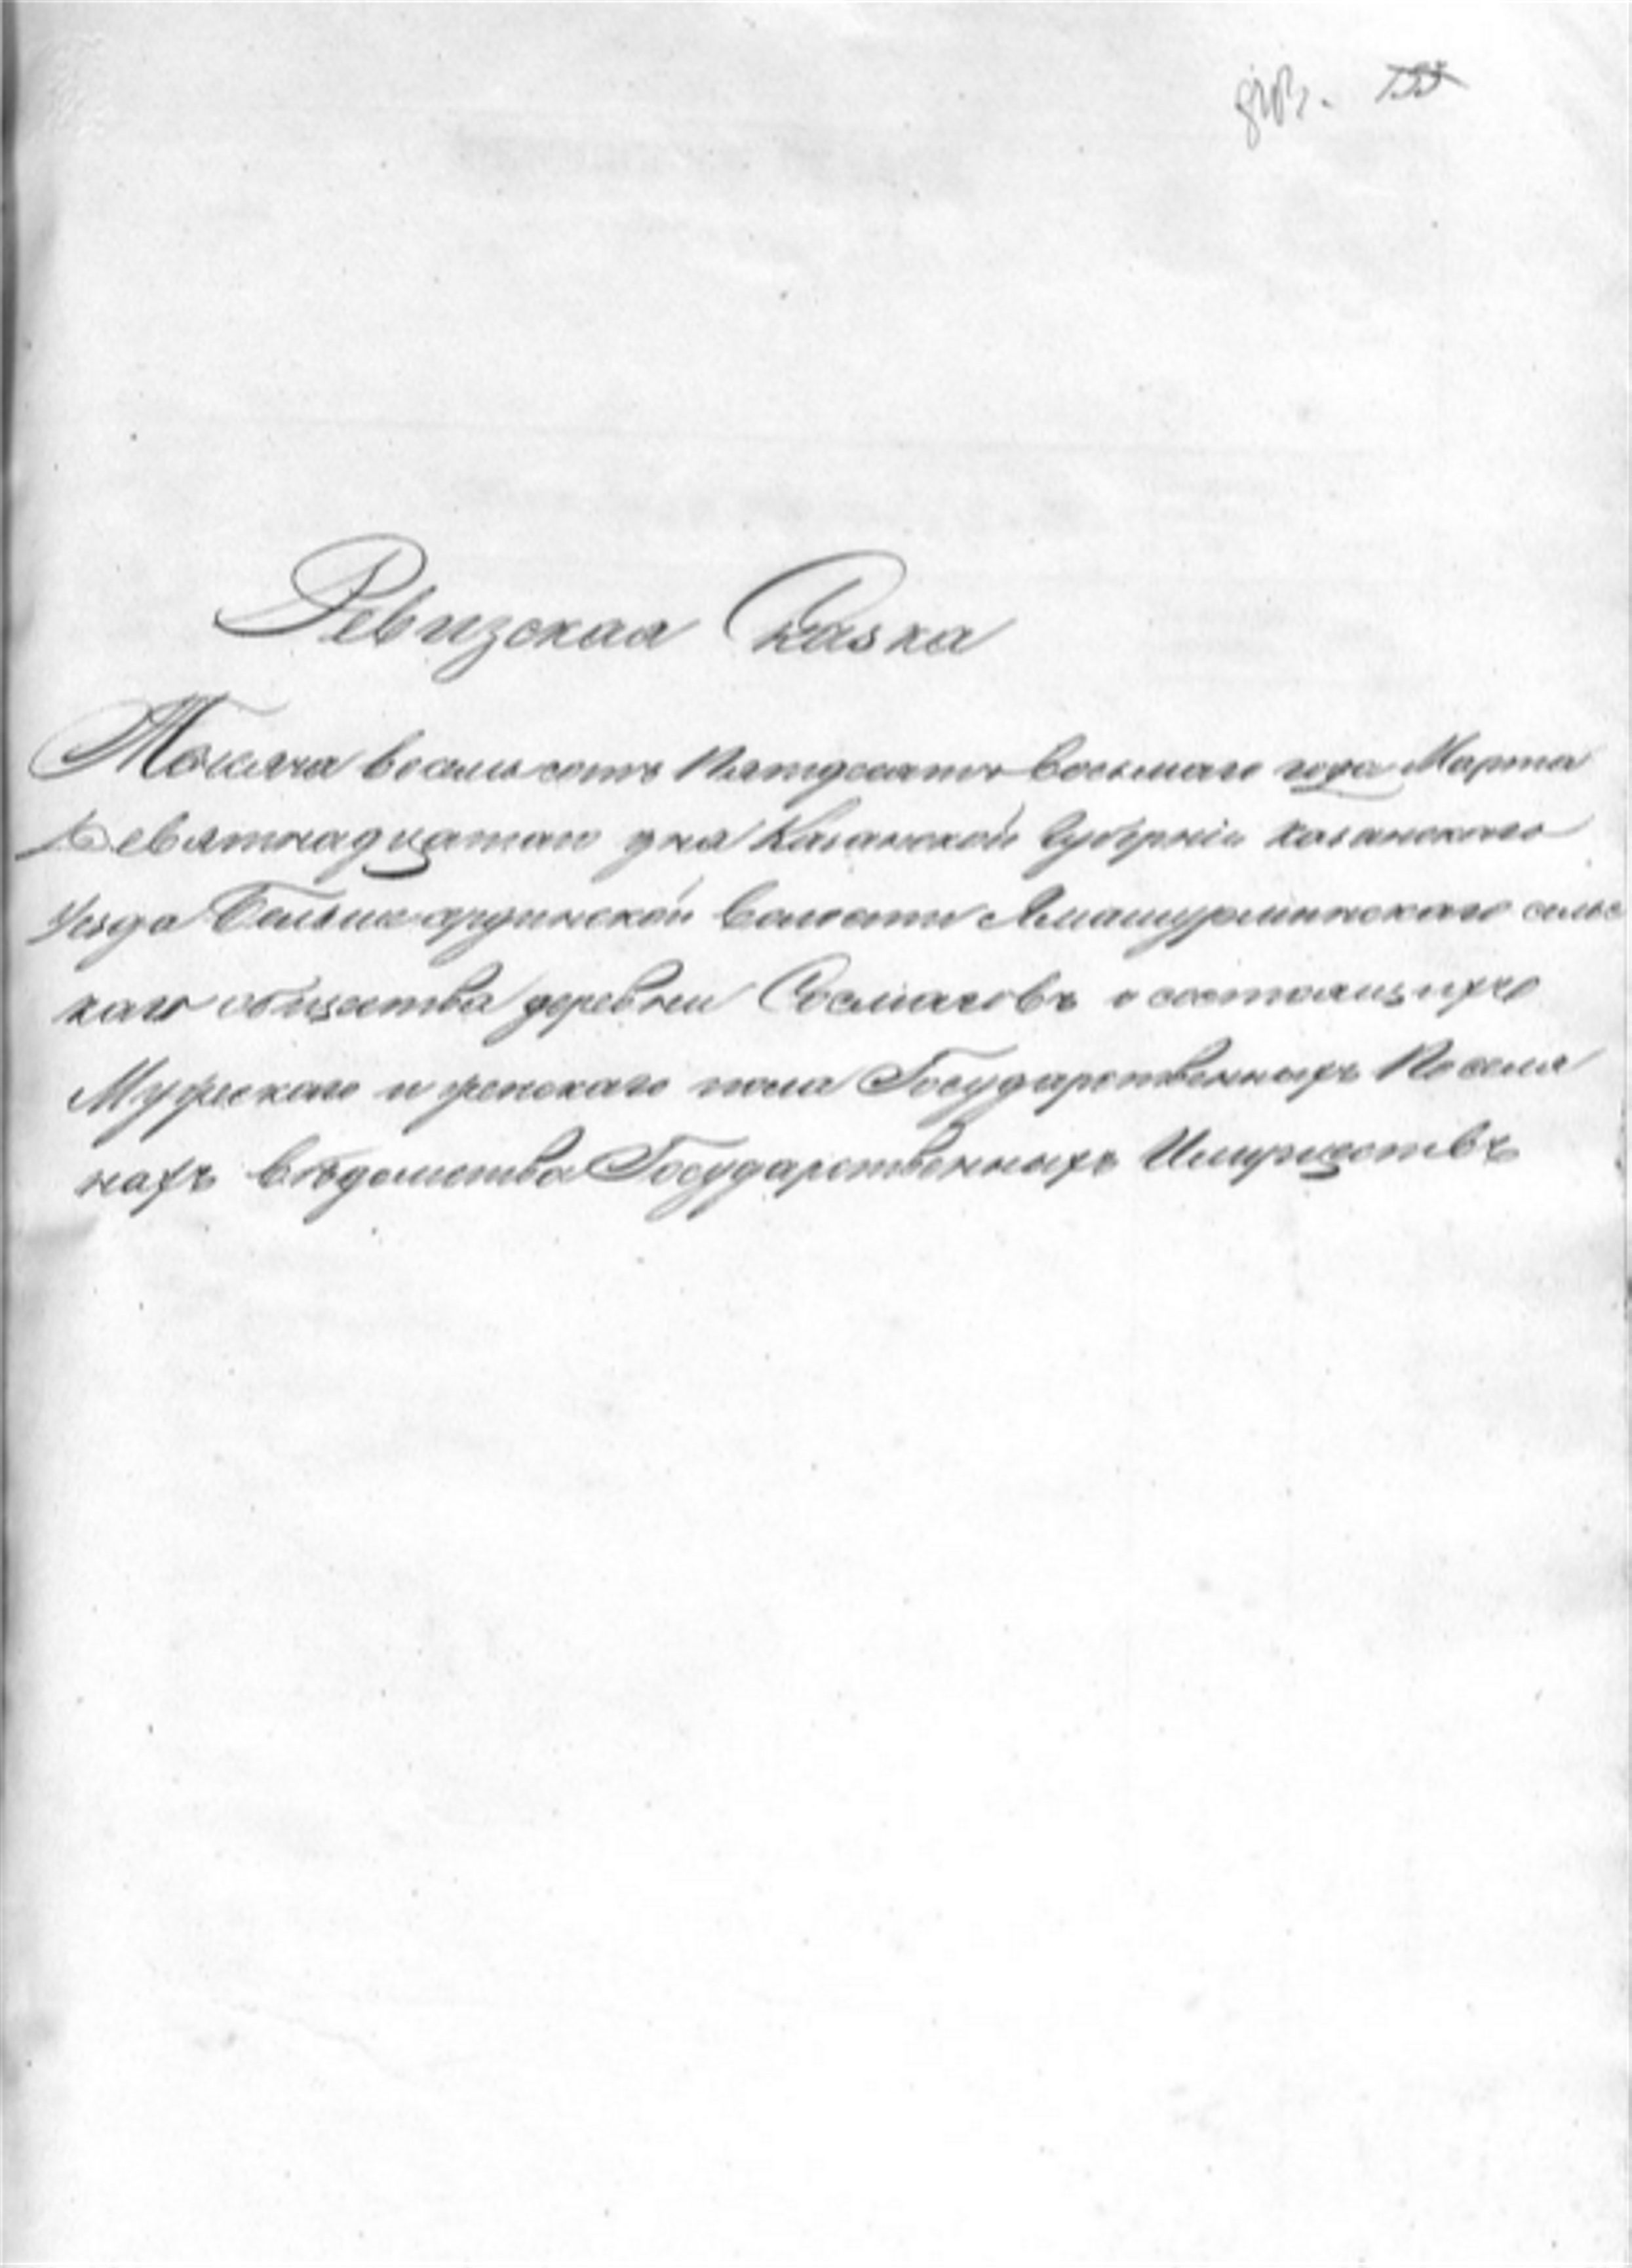 Ревизская Сказка
Тысяча восемьсотъ Пятдесятъ восьмаго года Марта
Девятнадцатаго дня Казанской Губерніи Казанскаго
Уезда волости сельс
каго общества деревни о состоящихъ
Мужескаго и женскаго пола Государственныхъ Поселя
нахъ вѣдомства Государственныхъ Имуществъ